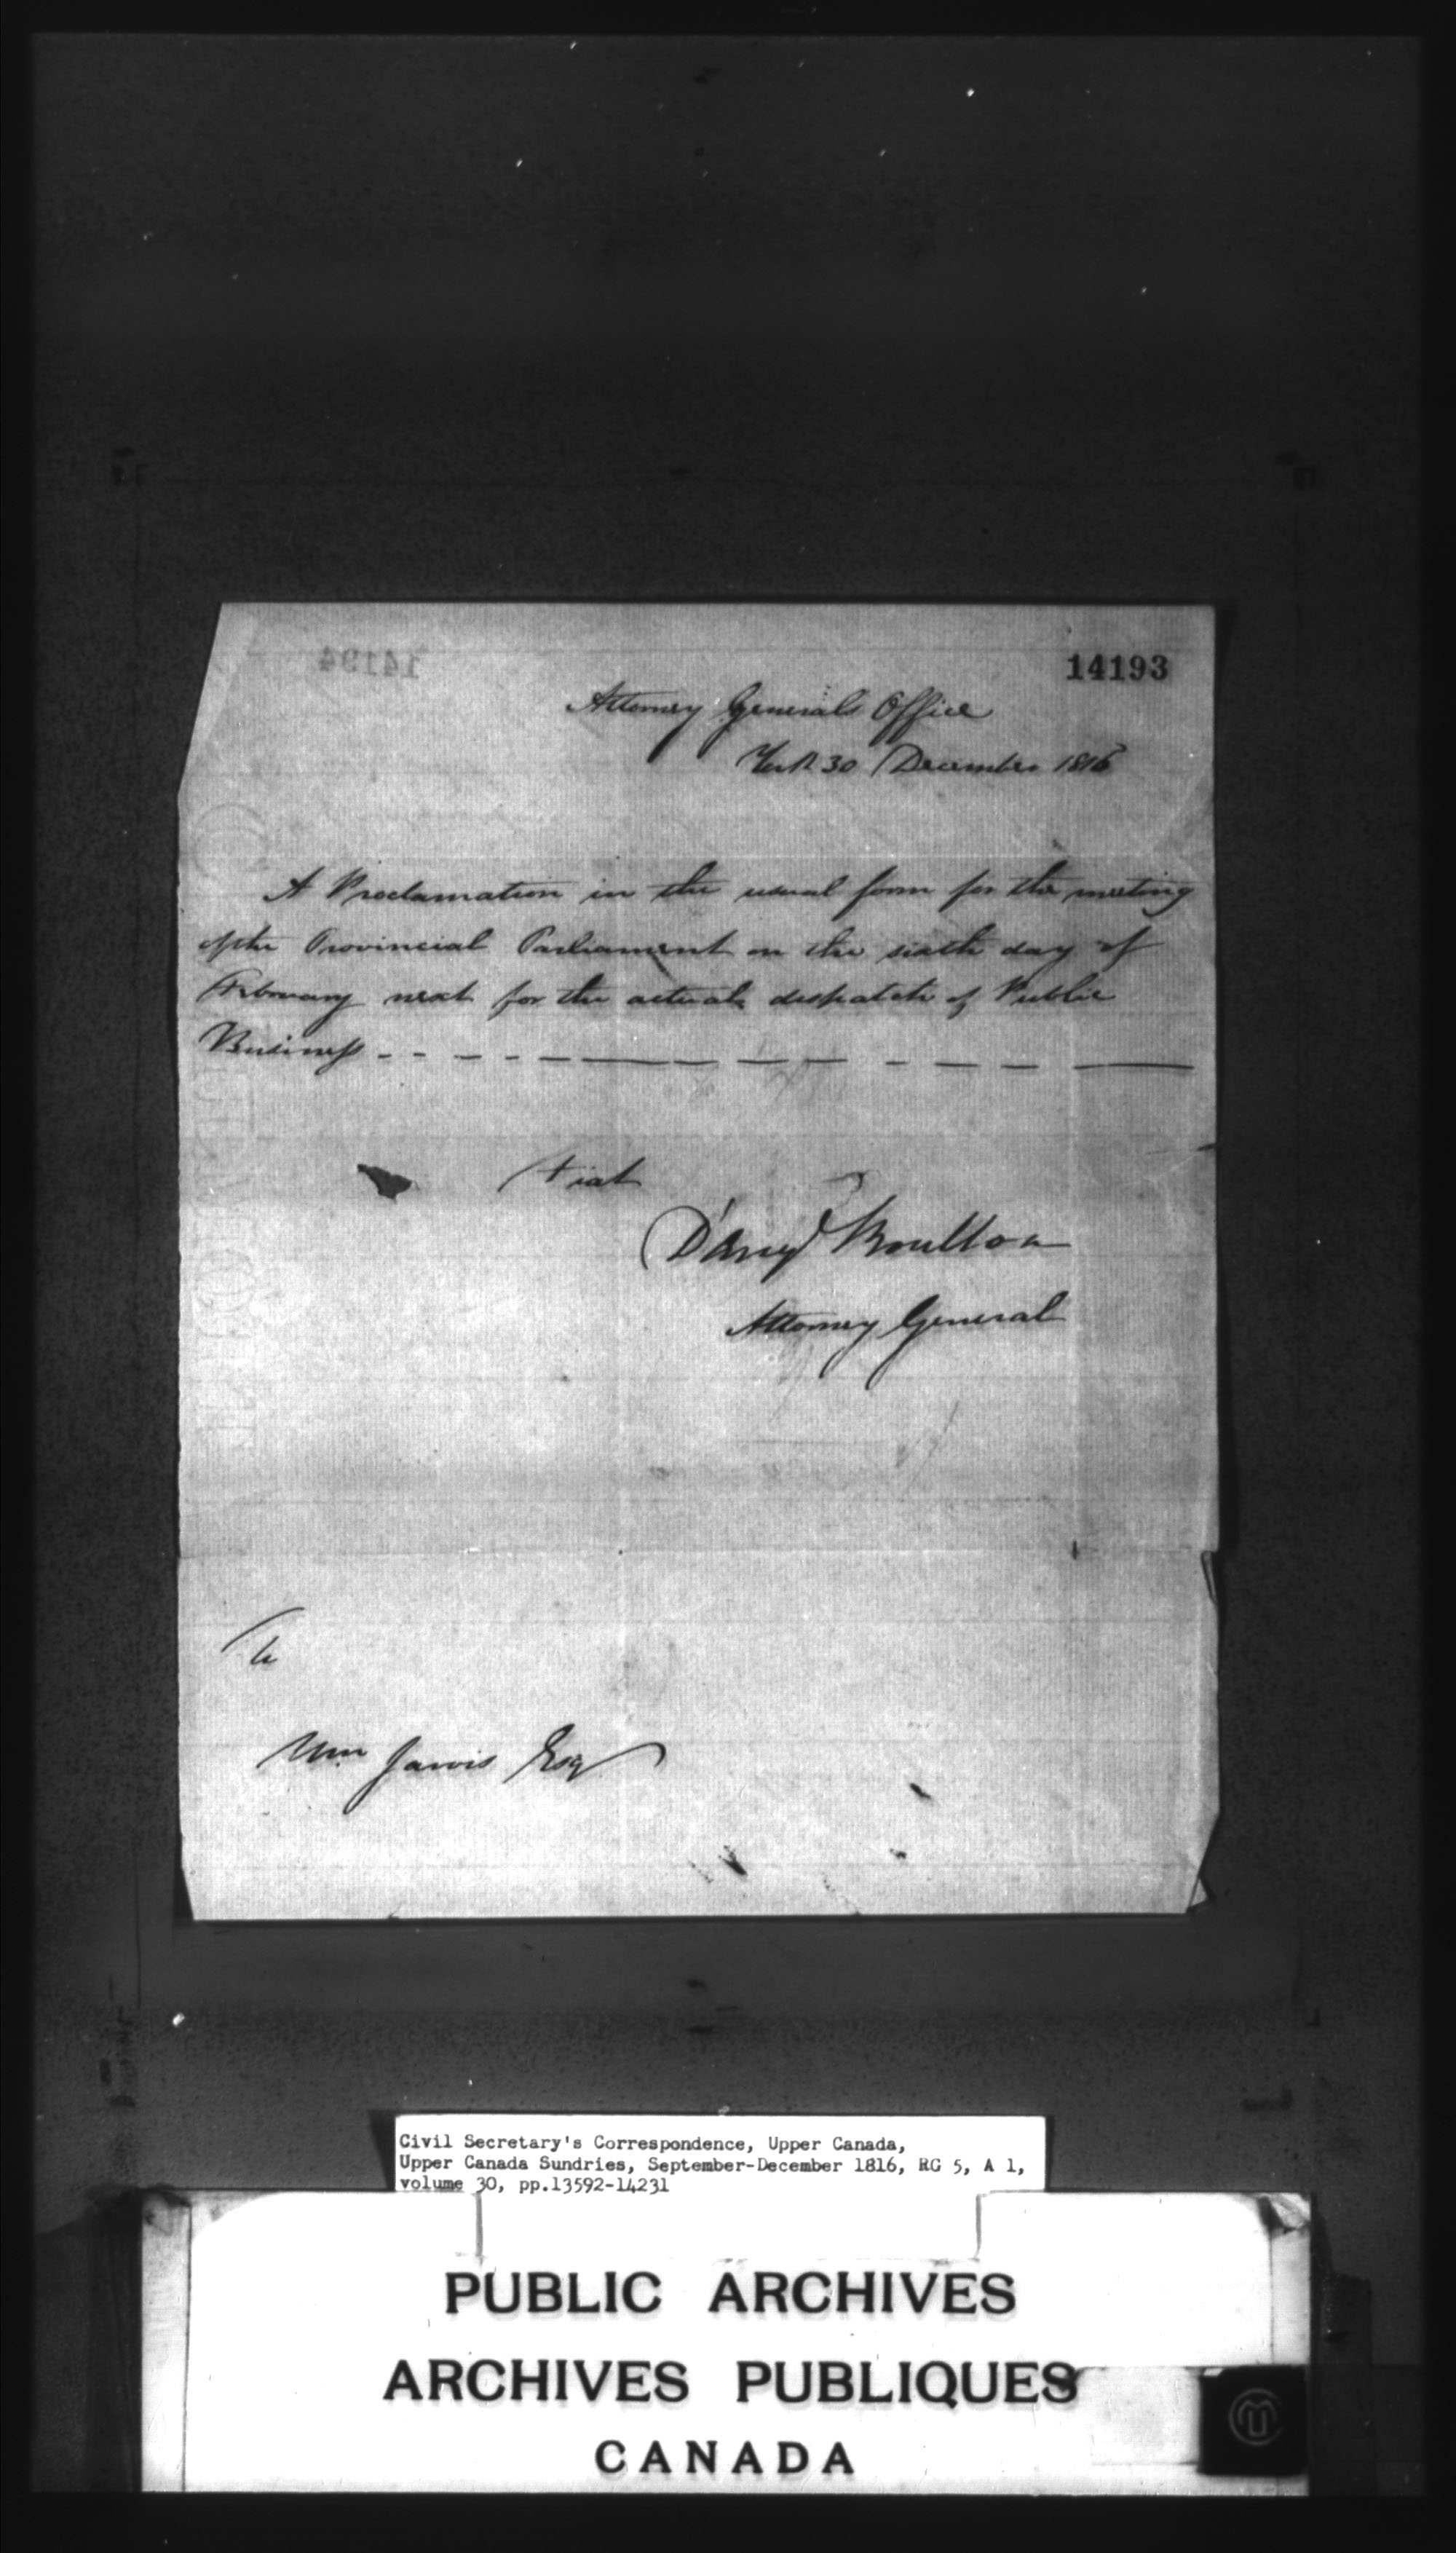 14193
Attorney Generals Office
York 30 December 1816
A Proclamation in the usual form for the meeting
of the Provincial Parliament on the sixth day of
February next for the actual dispatch of Public
Business
Fiat
D'Arcy Boulton
Attorney General
To
Wm Jarvis Esq
Civil Secretary's Correspondence, Upper Canada,
Upper Canada Sundries, September-December 1816, RG 5, A 1,
volume 30, pp.13592-14231
PUBLIC ARCHIVES
ARCHIVES PUBLIQUES
CANADA